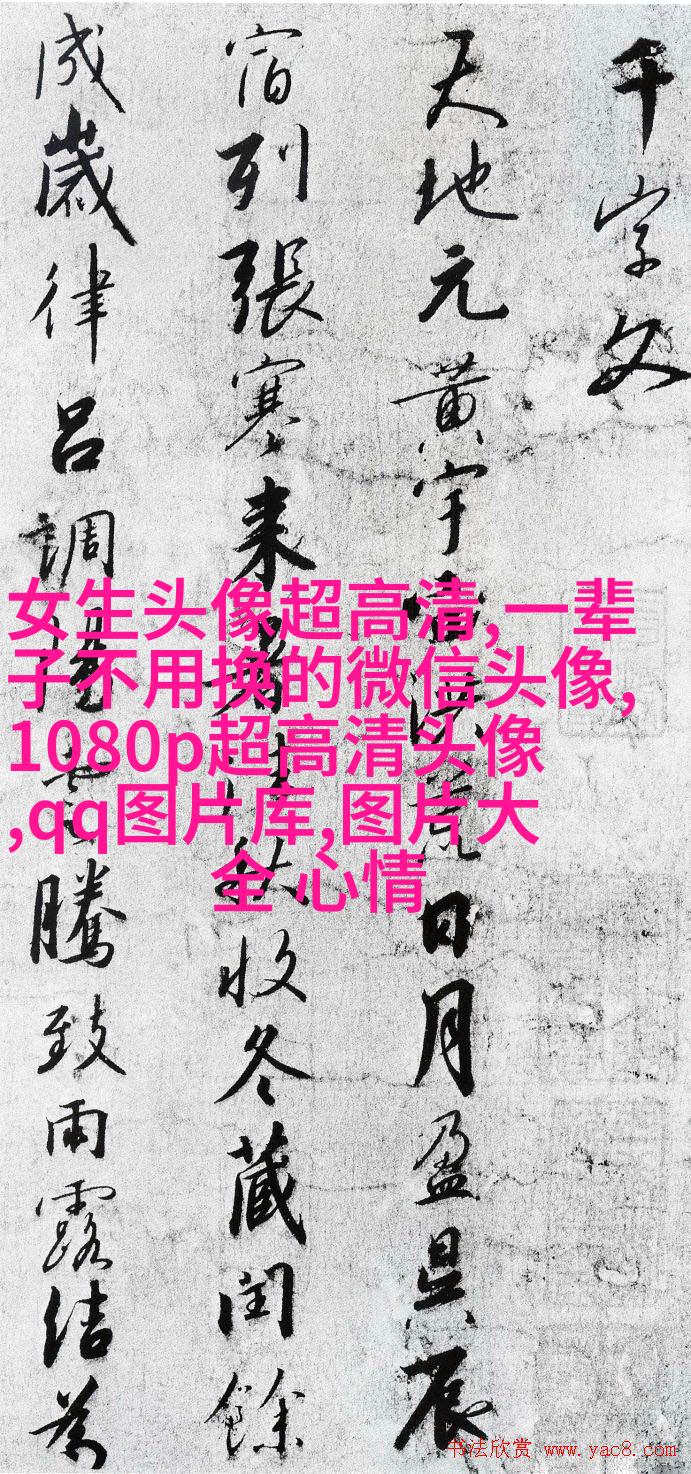 千字文
天地元黄宇宙洪荒日月盈昃辰
宿列張寒来暑往秋收冬蔵閏餘
成歲律吕調陽雲騰致雨露結為
女生头像超高清,一辈
子不用换的微信头像,
1080p超高清头像
,qq图片库,图片大
全 心情
书法欣赏 www.yac8.com